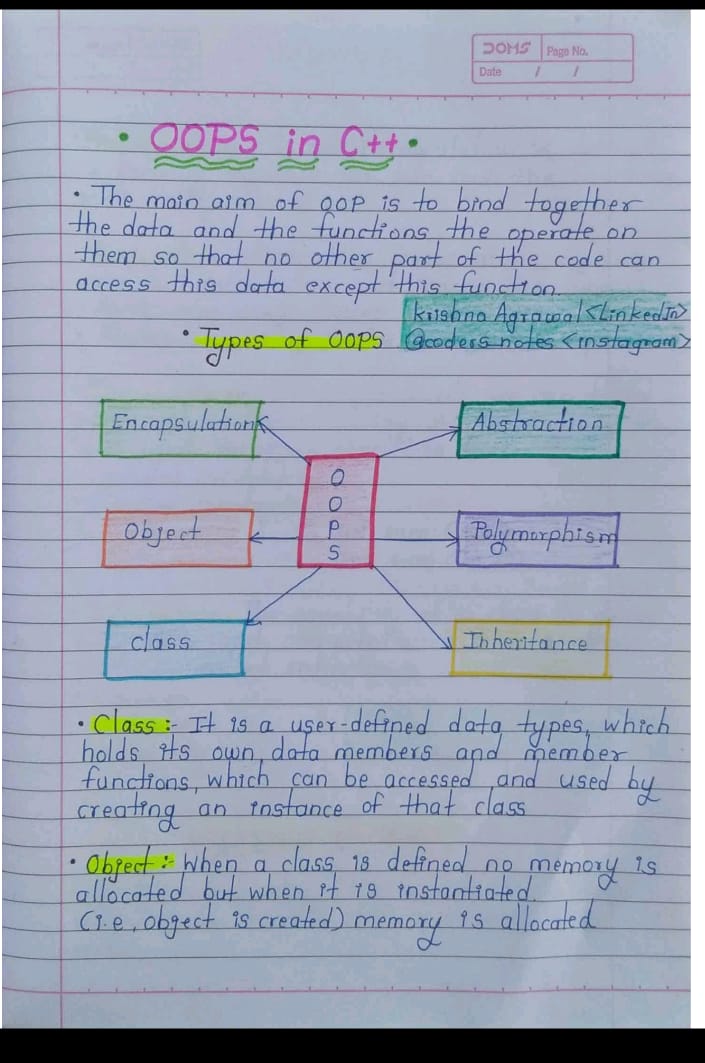 DOMS Page No.
Date / /
• OOPS in C++ •
• The main aim of OOP is to bind together
the data and the functions the operate on
them so that no other part of the code can
access this data except this function.
krishna Agrawal <LinkedIn>
• Types of OOPS @coders notes <instagram>
Encapsulation
Abstraction
O
O
P
S
Object
Polymorphism
class
Inheritance
• Class :- It is a user-defined data types, which
holds its own data members and member
functions, which can be accessed and used by
creating an instance of that class
• Object :- When a class is defined no memory is
allocated but when it is instantiated.
(i.e, object is created) memory is allocated